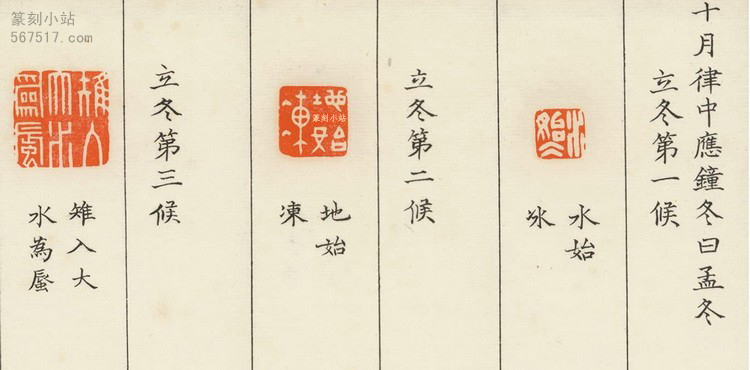 十月律中應鐘冬曰孟冬
立冬第一候
水始
冰
立冬第二候
地始
凍
立冬第三候
雉入大
水為蜃
篆刻小站
567517.com
篆刻小站